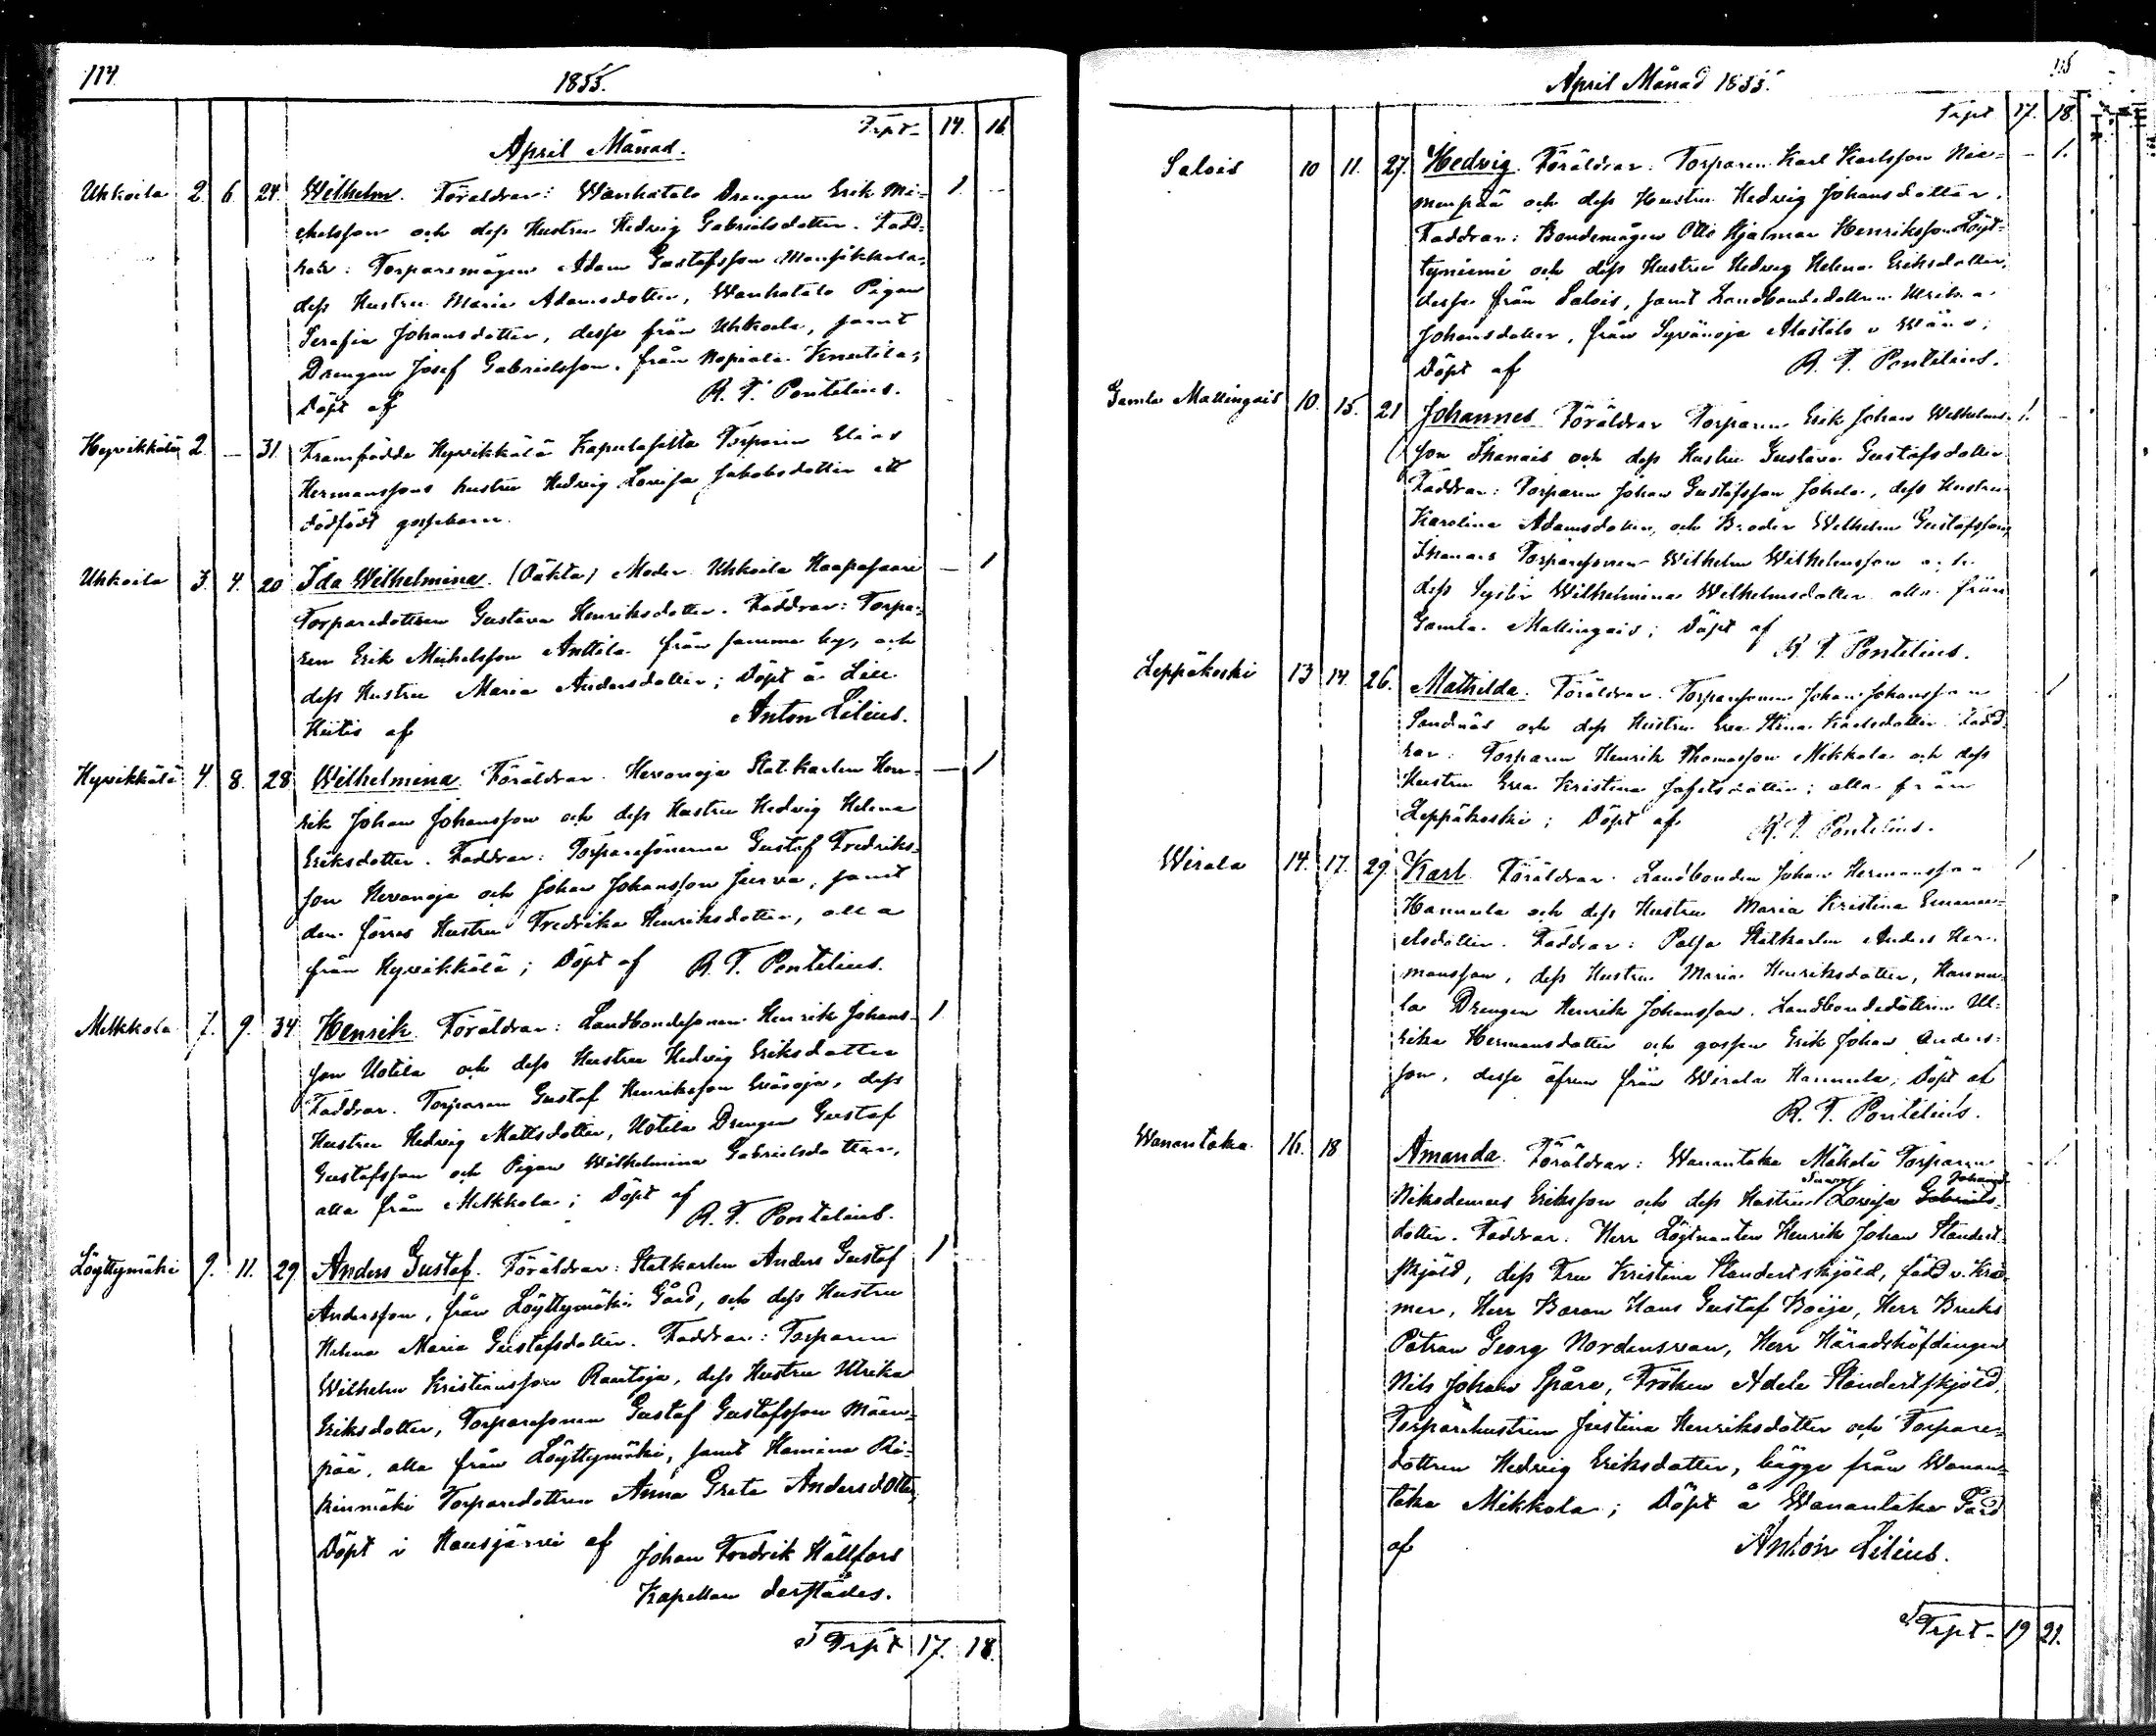 114.
1855.
Trpt. 14. 16.
April Månad.
Uhkoila 2. 6. 24. Wilhelm. Föräldrar: Wanhatalo Drengen Erik Mi- 1. —
chelsson och dess Hustru Hedvig Gabrielsdotter. Fadd-
rar: Torparemågen Adam Gustafsson Mansikkala,
dess Hustru Maria Adamsdotter, Wanhatalo Pigan
Serafia Johansdotter, dessa från Uhkoila, samt
Drengen Josef Gabrielsson, från Nopiala Knuutila;
Döpt af R. F. Pontelius.
Hyvikkälä 2. — 31. Framfödde Hyvikkälä Torparen Elias
Hermanssons hustru Hedvig Lovisa Jakobsdotter ett
dödfödt gossebarn.
Uhkoila 3. 4. 20 Ida Wilhelmina. (Oäkta) Moder Uhkoila Haapasaari — 1
Torparedottren Gustava Henriksdotter. Faddrar: Torpa-
ren Erik Michelsson Anttila från samma by, och
dess Hustru Maria Andersdotter; Döpt å Lill
Hiitis af Anton Lilius.
Hyvikkälä 4. 8. 28 Wilhelmina. Föräldrar. Hervonoja Statkarlen Hen- — 1
rik Johan Johansson och dess Hustru Hedvig Helena
Eriksdotter. Faddrar: Torparesönerna Gustaf Fredriks-
son Hervonoja och Johan Johansson Jurva, samt
den förres Hustru Fredrika Henriksdotter, alla
från Hyvikkälä; Döpt af R. F. Pontelius.
Melkkola 7. 9. 34 Henrik. Föräldrar: Landbondesonen Henrik Johans- 1
son Uotila och dess Hustru Hedvig Eriksdotter
Faddrar. Torparen Gustaf Henriksson Eväoja, dess
Hustru Hedvig Mattsdotter, Uotila Drengen Gustaf
Gustafsson och Pigan Wilhelmina Gabrielsdotter,
alla från Melkkola; Döpt af
R. F. Pontelius.
Löyttymäki 9. 11. 29 Anders Gustaf. Föräldrar: Statkarlen Anders Gustaf 1
Andersson, från Löyttymäki Gård, och dess Hustru
Helena Maria Gustafsdotter. Faddrar: Torparen
Wilhelm Kristiansson Rautoja, dess Hustru Ulrika
Eriksdotter, Torparesonen Gustaf Gustafsson Mäen-
pää, alla från Löyttymäki, samt
Torparedottren Anna Greta Andersdotter,
Döpt i Hausjärvi af Johan Fredrik Hällfors
Kapellan derstädes.
Trpt 17. 18.
115
April Månad 1855.
Trpt 17. 18.
Salois 10 11. 27. Hedvig. Föräldrar: Torparen Karl Karlsson Nie- — 1.
menpää och dess Hustru Hedvig Johansdotter.
Faddrar: Bondemågen Otto Hjalmar Henriksson Löyt-
tyniemi och dess Hustru Hedvig Helena Eriksdotter,
dessa från Salois, samt Landbondedottren Ulrika
Johansdotter, från Syvänoja Alastalo i Wånå;
Döpt af R. F. Pontelius.
Gamla Mallingais 10. 15. 21 Johannes Föräldrar Torparen Erik Johan Wilhelms- 1.
son Ihanais och dess Hustru Gustava Gustafsdotter
Faddrar: Torparen Johan Gustafsson Johela, dess Hustru
Karolina Adamsdotter, och Broder Wilhelm Gustafsson,
Ihanais Torparesonen Wilhelm Wilhelmsson och
dess Syster Wilhelmina Wilhelmsdotter alla från
Gamla Mallingais; Döpt af
R. F. Pontelius.
Leppäkoski 13 14. 26. Mathilda. Föräldrar. Torparesonen Johan Johansson 1
Sandnäs och dess Hustru Eva Stina Karlsdotter. Fadd-
rar: Torparen Henrik Thomasson Mikkola och dess
Hustru Eva Kristina Jafetsdotter; alla från
Leppäkoski; Döpt af R. F. Pontelius.
Wirala 14. 17. 29. Karl. Föräldrar. Landbonden Johan Hermansson 1
Hannula och dess Hustru Maria Kristina Emanu-
elsdotter. Faddrar: Palsa Statkarlen Anders Her-
mansson, dess Hustru Maria Henriksdotter, Hannu-
la Drengen Henrik Johansson. Landbondedottren Ul-
rika Hermansdotter och gossen Erik Johan Anders-
son, dessa äfven från Wirala Hannula; Döpt af
R. F. Pontelius.
Wanantaka 16. 18 Amanda. Föräldrar: Wanantaka Mäkelä Torparen — 1.
Johans-
Nikodemus Eriksson och dess Hustru Lovisa Gabriels-
dotter. Faddrar: Herr Löjtnanten Henrik Johan Standert-
skjöld, dess Fru Kristina Standertskjöld, född v. Kræ-
mer, Herr Baron Hans Gustaf Boije, Herr Bruks
Patron Georg Nordensvan, Herr Häradshöfdingen
Nils Johan Spåre, Fröken Adele Standertskjöld,
Torparehustrun Justina Henriksdotter och Torpare-
dottren Hedvig Eriksdotter, bägge från Wanan-
taka Mikkola; Döpt å Wanantaka Gård
af Anton Lilius.
Trpt 19 21.